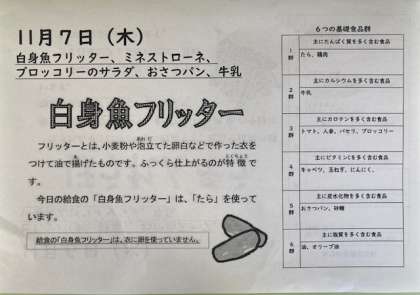 11月7日（木）
白身魚フリッター、ミネストローネ、
ブロッコリーのサラダ、おさつパン、牛乳
白身魚フリッター
フリッターとは、小麦粉や泡立てた卵白などで作った衣を
つけて油で揚げたものです。ふっくら仕上がるのが特徴で
す。
今日の給食の「白身魚フリッター」は、「たら」を使って
います。
給食の「白身魚フリッター」は、衣に卵を使っていません。
6つの基礎食品群
1群
主にたんぱく質を多く含む食品
たら、鶏肉
2群
主にカルシウムを多く含む食品
牛乳
3群
主にカロテンを多く含む食品
トマト、人参、パセリ、ブロッコリー
4群
主にビタミンCを多く含む食品
キャベツ、玉ねぎ、にんにく、
5群
主に炭水化物を多く含む食品
おさつパン、砂糖
6群
主に脂質を多く含む食品
油、オリーブ油